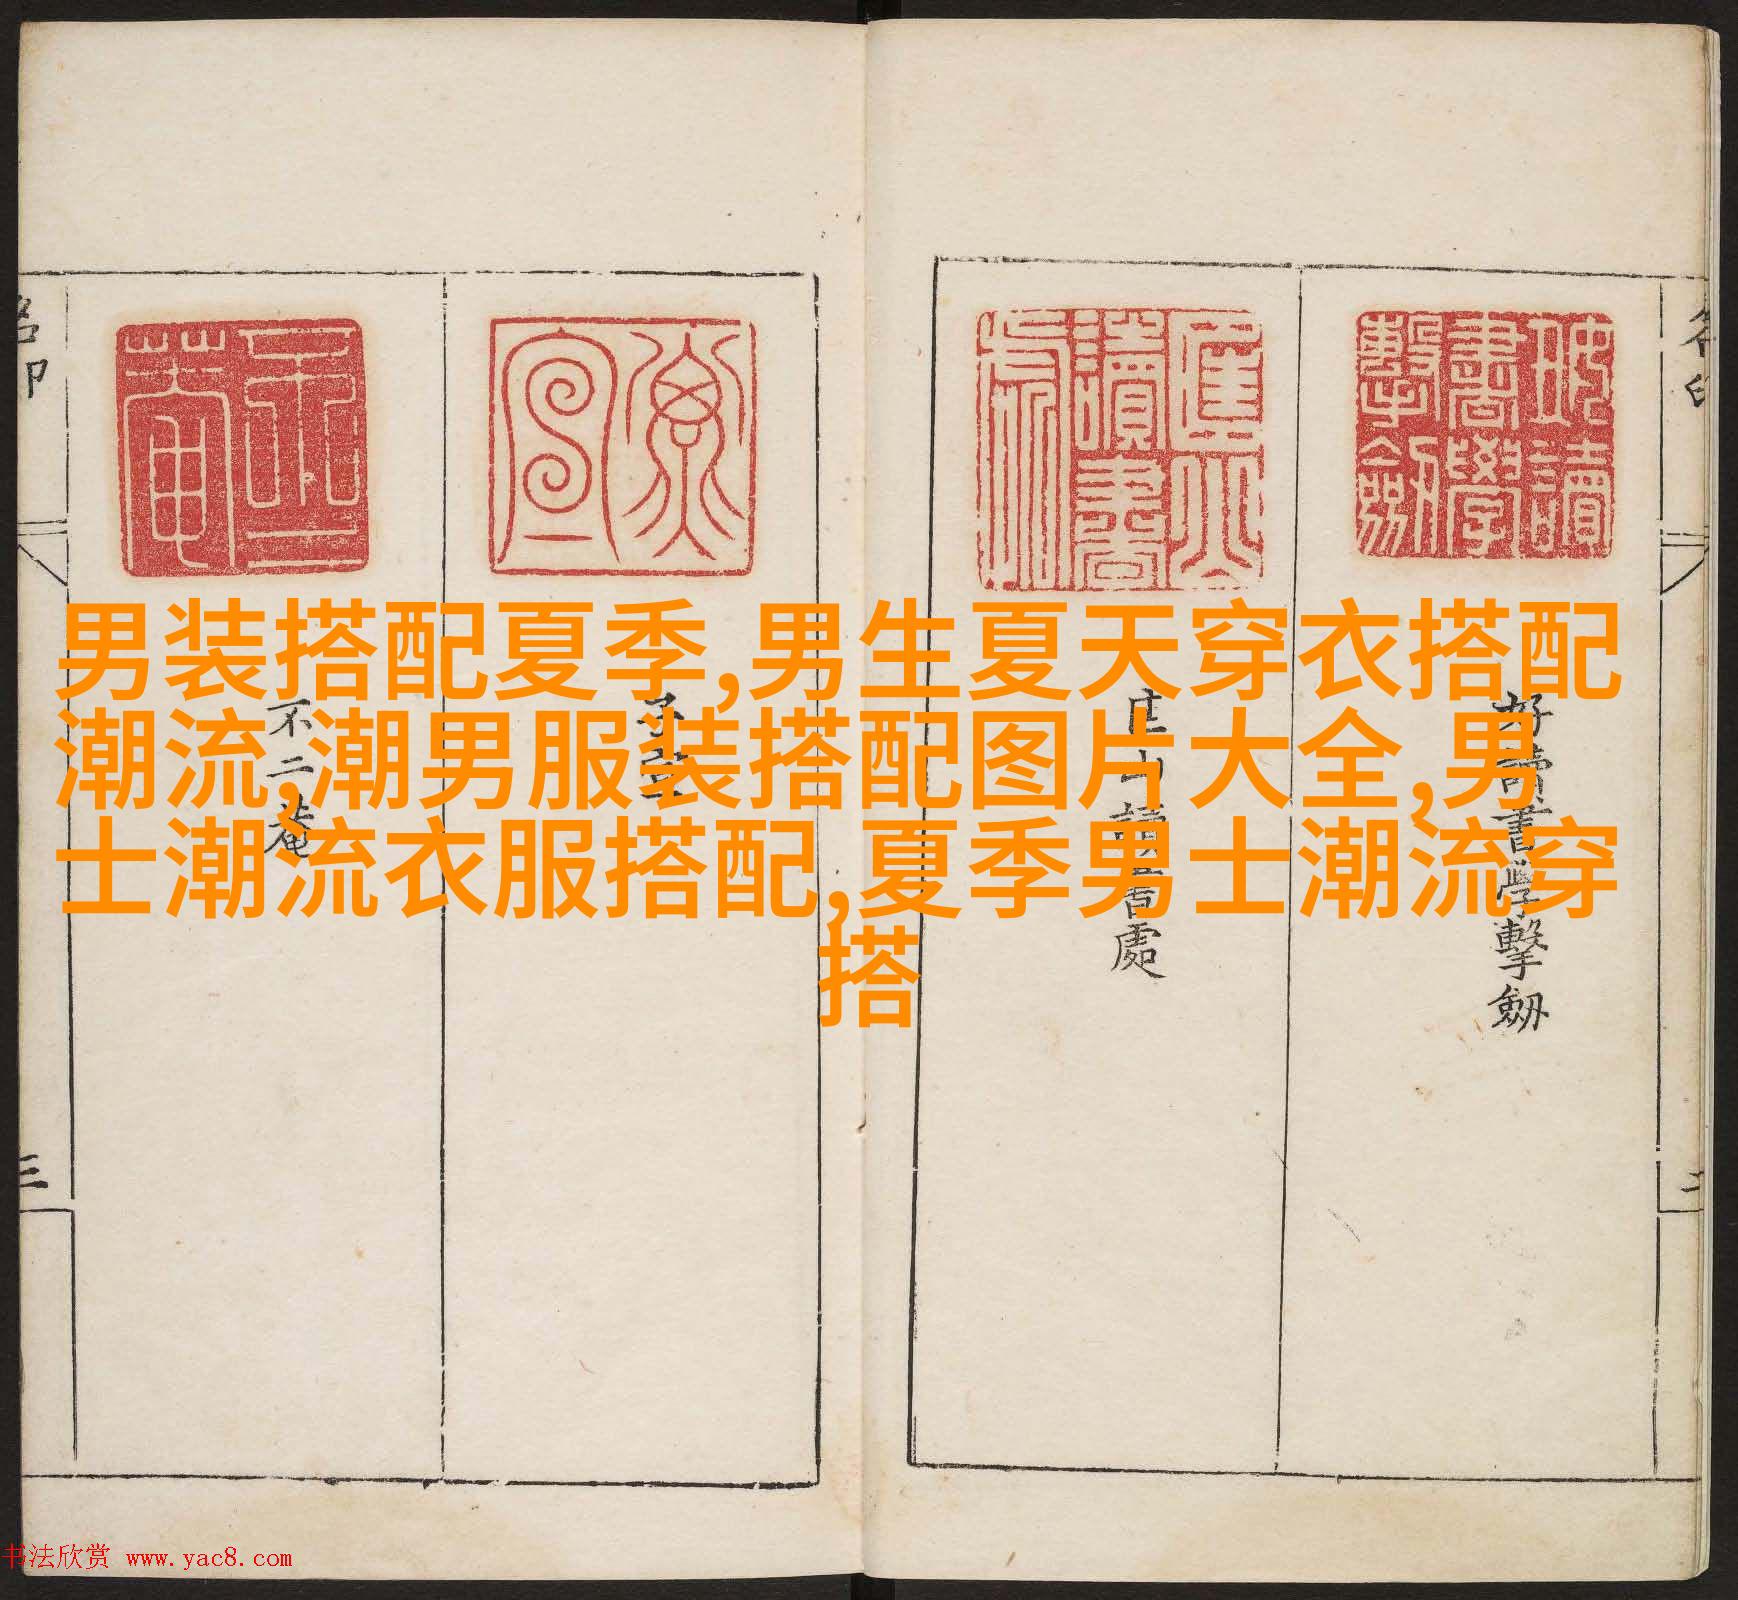 男装搭配夏季,男生夏天穿衣搭配
潮流,潮男服装搭配图片大全,男
士潮流衣服搭配,夏季男士潮流穿
搭
好讀書學擊劒
匡山讀書處
不二菴
三
书法欣赏 www.yac8.com